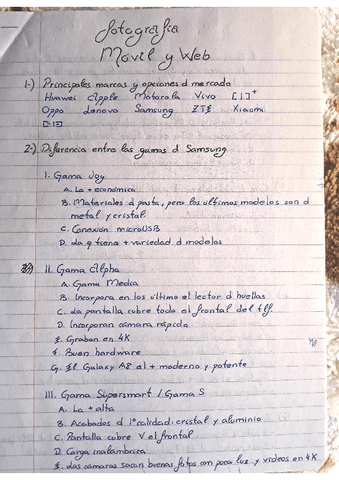 fotografía
Móvil y Web
1-) Principales marcas y opciones d mercado
Huawei Apple Motorola Vivo [1]+
Oppo Lenovo Samsung ZTE Xiaomi
[-1]
2-) Diferencia entre las gamas d Samsung
I. Gama Joy
A. La + económica
B. Materiales d pasta, pero los últimos modelos son d
metal y cristal
C. Conexión microUSB
D. La q tiene + variedad d modelos
II. Gama Alpha
A. Gama Media
B. Incorpora en los último el lector d huellas
C. La pantalla cubre todo el frontal del tlf.
D. Incorporan cámara rápida
E. Graban en 4K
F. Buen hardware
G. El Galaxy A8 el + moderno y potente
III. Gama Supersmart / Gama S
A. La + alta
B. Acabados d 1º calidad: cristal y aluminio
C. Pantalla cubre V el frontal
D. Carga inalámbrica
E. Las cámaras sacan buenas fotos con poca luz y videos en 4K